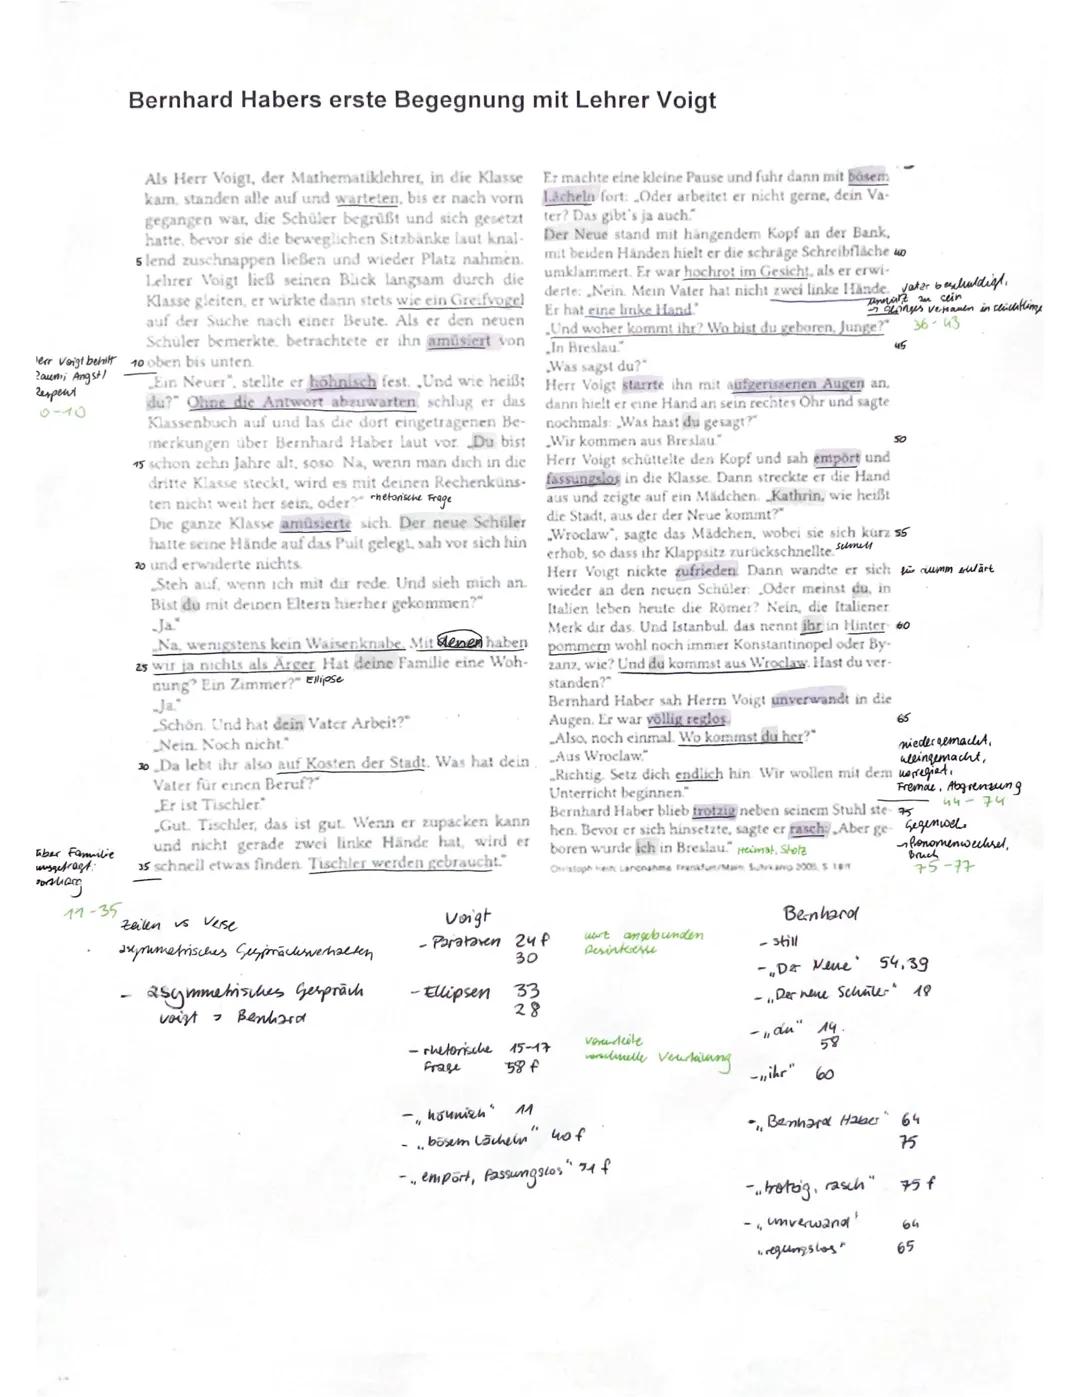 Bernhard Habers erste Begegnung mit Lehrer Voigt
Als Herr Voigt, der Mathematiklehrer, in die Klasse
kam, standen alle auf und warteten, bis er nach vorn
gegangen war, die Schüler begrüßt und sich gesetzt
hatte, bevor sie die beweglichen Sitzbänke laut knal-
5 lend zuschnappen ließen und wieder Platz nahmen.
Lehrer Voigt ließ seinen Blick langsam durch die
Klasse gleiten, er wirkte dann stets wie ein Greifvogel
auf der Suche nach einer Beute. Als er den neuen
Schüler bemerkte, betrachtete er ihn amüsiert von
10 oben bis unten.
Herr Voigt betritt
Raum; Angst/
Respekt
0-10
„Ein Neuer", stellte er höhnisch fest. „Und wie heißt
du?" Ohne die Antwort abzuwarten, schlug er das
Klassenbuch auf und las die dort eingetragenen Be-
merkungen über Bernhard Haber laut vor. „Du bist
15 schon zehn Jahre alt, soso. Na, wenn man dich in die
dritte Klasse steckt, wird es mit deinen Rechenküns-
ten nicht weit her sein, oder?" rhetorische Frage
Die ganze Klasse amüsierte sich. Der neue Schüler
hatte seine Hände auf das Pult gelegt, sah vor sich hin
20 und erwiderte nichts.
„Steh auf, wenn ich mit dir rede. Und sieh mich an.
Bist du mit deinen Eltern hierher gekommen?"
„Ja."
„Na, wenigstens kein Waisenknabe. Mit denen haben
25 wir ja nichts als Ärger. Hat deine Familie eine Woh-
nung? Ein Zimmer?" Ellipse
„Ja."
„Schön. Und hat dein Vater Arbeit?"
„Nein. Noch nicht."
30 „Da lebt ihr also auf Kosten der Stadt. Was hat dein
Vater für einen Beruf?"
„Er ist Tischler."
„Gut. Tischler, das ist gut. Wenn er zupacken kann
und nicht gerade zwei linke Hände hat, wird er
35 schnell etwas finden. Tischler werden gebraucht."
über Familie
ausgefragt:
11-35
Er machte eine kleine Pause und fuhr dann mit bösem
Lächeln fort: „Oder arbeitet er nicht gerne, dein Va-
ter? Das gibt's ja auch."
Der Neue stand mit hängendem Kopf an der Bank,
mit beiden Händen hielt er die schräge Schreibfläche 40
umklammert. Er war hochrot im Gesicht, als er erwi-
derte: „Nein. Mein Vater hat nicht zwei linke Hände.
Er hat eine linke Hand."
Vater beschuldigt,
zu sein
36-43
„Und woher kommt ihr? Wo bist du geboren, Junge?"
„In Breslau." 45
„Was sagst du?"
Herr Voigt starrte ihn mit aufgerissenen Augen an,
dann hielt er eine Hand an sein rechtes Ohr und sagte
nochmals: „Was hast du gesagt?"
„Wir kommen aus Breslau." 50
Herr Voigt schüttelte den Kopf und sah empört und
fassungslos in die Klasse. Dann streckte er die Hand
aus und zeigte auf ein Mädchen. „Kathrin, wie heißt
die Stadt, aus der der Neue kommt?"
„Wroclaw", sagte das Mädchen, wobei sie sich kurz 55
erhob, so dass ihr Klappsitz zurückschnellte. schnell
Herr Voigt nickte zufrieden. Dann wandte er sich für dumm erklärt
wieder an den neuen Schüler: „Oder meinst du, in
Italien leben heute die Römer? Nein, die Italiener.
Merk dir das. Und Istanbul, das nennt ihr in Hinter- 60
pommern wohl noch immer Konstantinopel oder By-
zanz, wie? Und du kommst aus Wroclaw. Hast du ver-
standen?"
Bernhard Haber sah Herrn Voigt unverwandt in die
Augen. Er war völlig reglos. 65
„Also, noch einmal. Wo kommst du her?"
„Aus Wroclaw."
„Richtig. Setz dich endlich hin. Wir wollen mit dem
Unterricht beginnen."
niedergemacht,
kleingemacht,
korregiert,
Fremde, Abgrenzung
44-74
Bernhard Haber blieb trotzig neben seinem Stuhl ste- 75
hen. Bevor er sich hinsetzte, sagte er rasch: „Aber ge-
boren wurde ich in Breslau." Heimat, Stolz
Gegenwehr
→ Pronomenwechsel,
Bruch
75-77
Christoph Hein, Landnahme. Frankfurt/Main: Suhrkamp 2005, S. 18ff
Zeilen vs Verse
asymmetrisches Gesprächsverhalten
- asymmetrisches Gespräch
Voigt > Benhard
Voigt
- Parataxen 24 f
30
kurz angebunden
Desinteresse
- Ellipsen 33
28
- rhetorische 15-17
Frage 58 f
Vorurteile
vorschnelle Verurteilung
- „höhnisch" 11
- „bösem Lächeln" 40 f
- „empört, fassungslos" 51 f
Bernhard
- still
- „Der Neue" 54,39
- „Der neue Schüler" 18
- „du" 14.
58
- „ihr" 60
- „Bernhard Haber" 64
75
- „trotzig, rasch" 75 f
- „unverwand" 64
„regungslos" 65